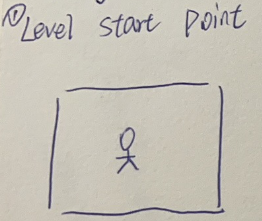 ①Level start point